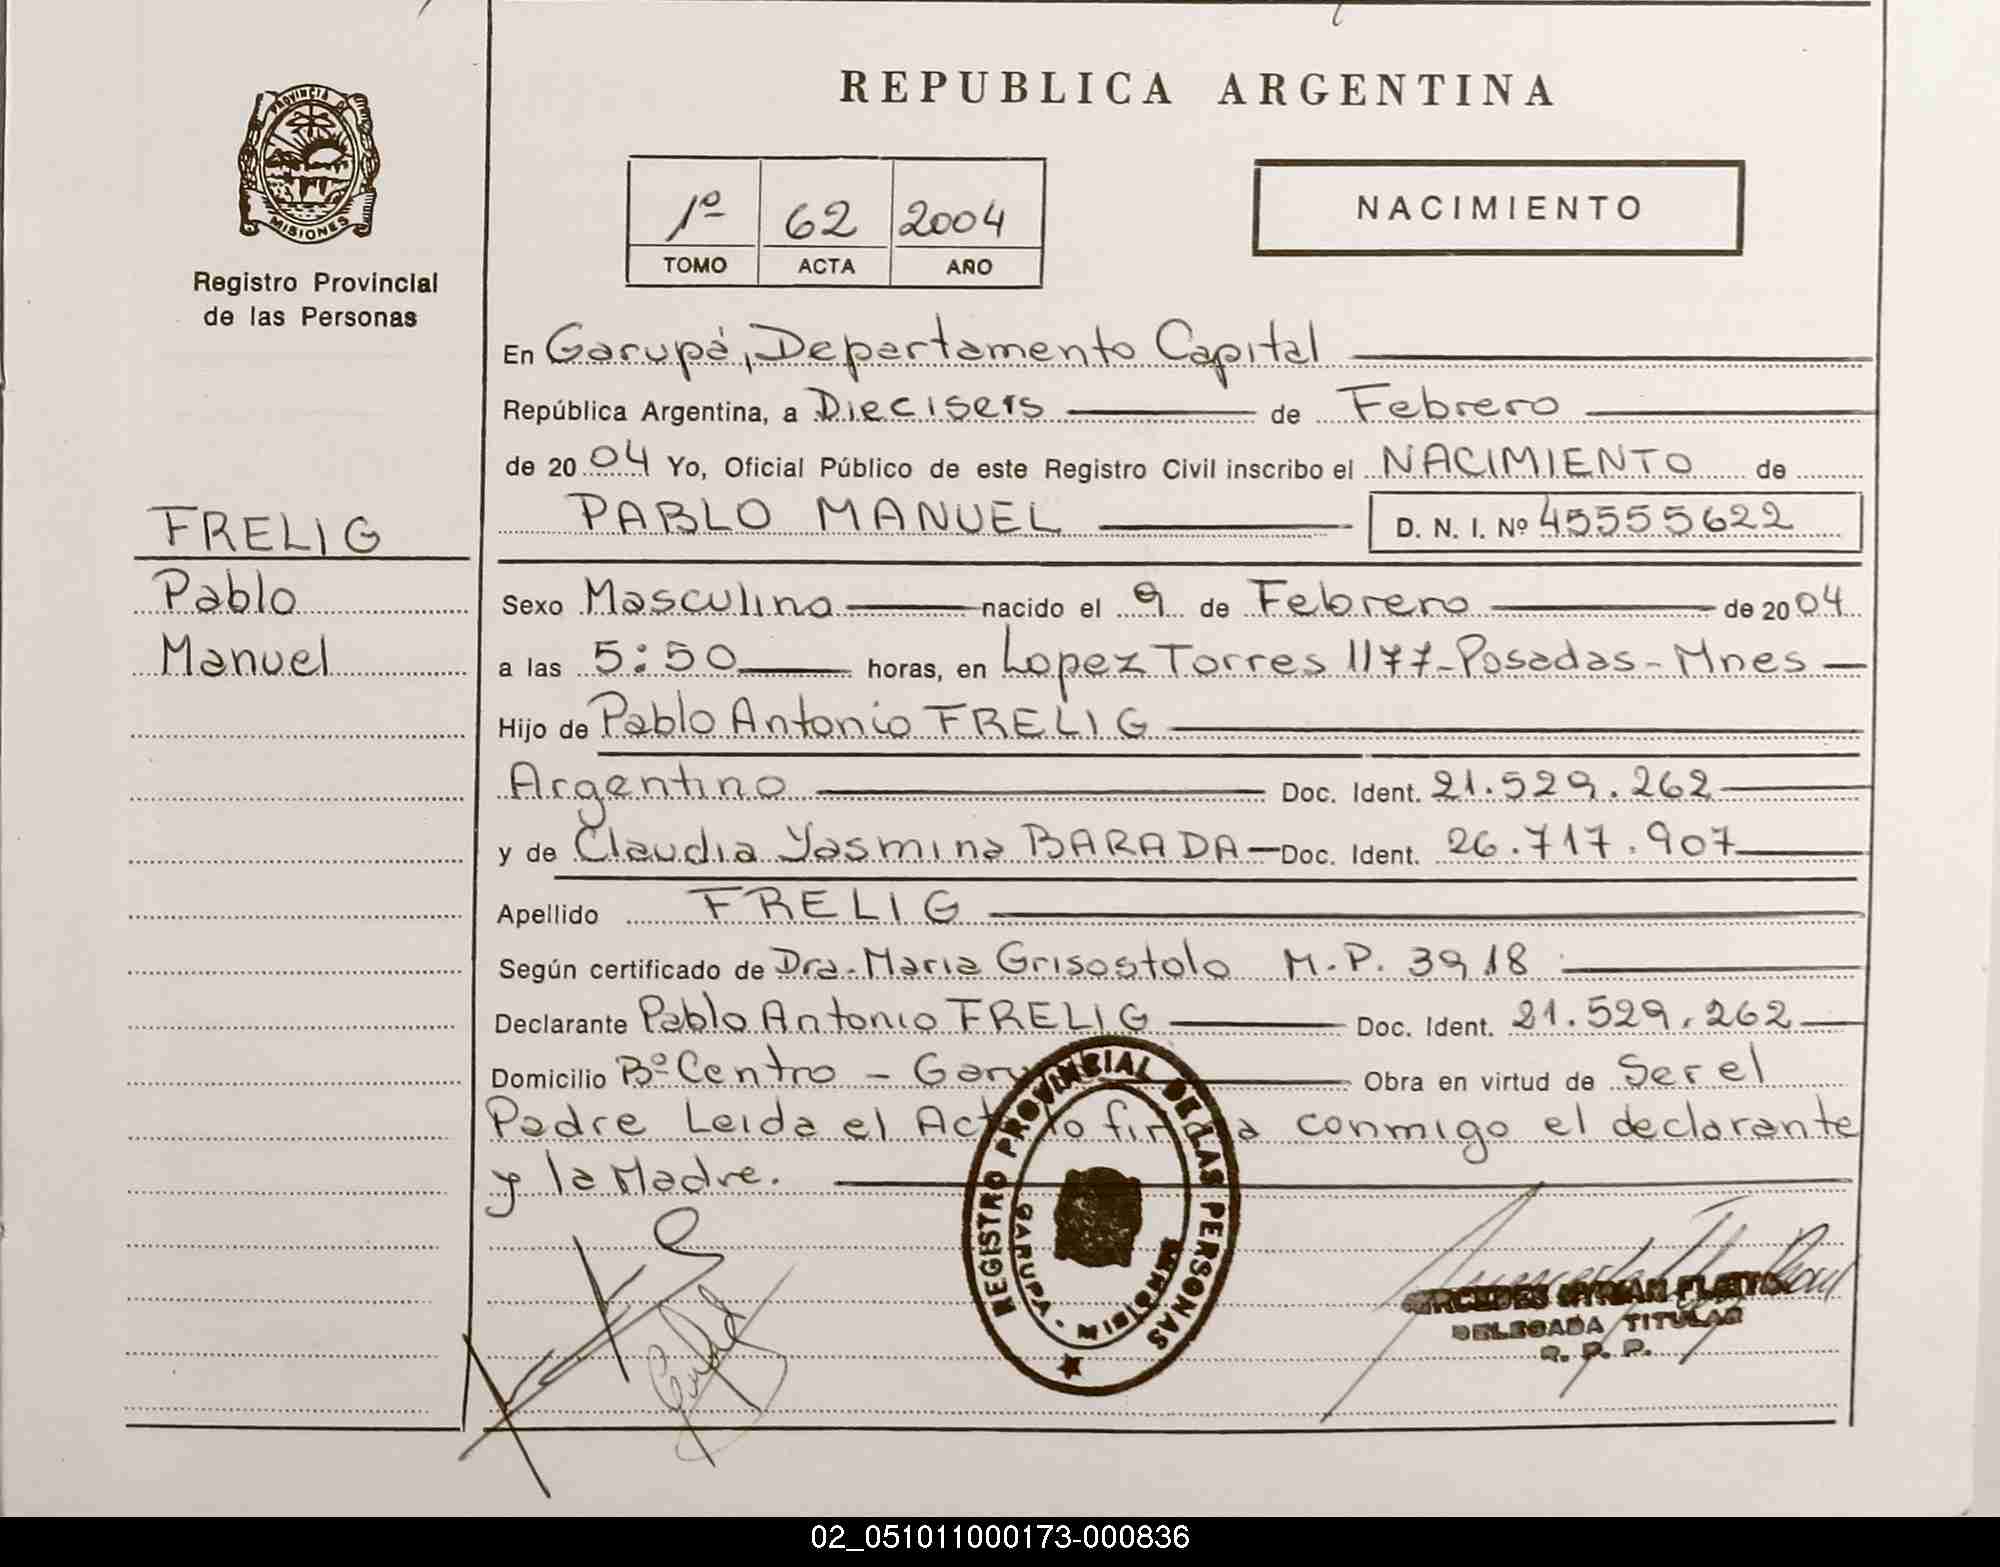 PROVINCIA D
MISIONES
Registro Provincial
de las Personas
FRELIG
Pablo
Manuel
REPUBLICA ARGENTINA
1º 62 2004
TOMO ACTA AÑO
NACIMIENTO
En Garupá, Departamento Capital
República Argentina, a Dieciseis de Febrero
de 2004 Yo, Oficial Público de este Registro Civil inscribo el NACIMIENTO de
PABLO MANUEL D. N. I. Nº 45555622
Sexo Masculino nacido el 9 de Febrero de 2004
a las 5:50 horas, en Lopez Torres 1177-Posadas-Mnes
Hijo de Pablo Antonio FRELIG
Argentino Doc. Ident. 21.529.262
y de Claudia Yasmina BARADA Doc. Ident. 26.717.907
Apellido FRELIG
Según certificado de Dra. Maria Grisostolo M.P. 3918
Declarante Pablo Antonio FRELIG Doc. Ident. 21.529.262
Domicilio Bº Centro - Garu Obra en virtud de Ser el
Padre Leida el Act lo firma conmigo el declarante
y la Madre.
REGISTRO PROVINCIAL DE LAS PERSONAS
GARUPA - MISIONES
MERCEDES MYRIAN FLEITAS
DELEGADA TITULAR
R. P. P.
02_051011000173-000836